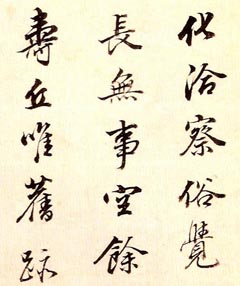 化洽察俗覺
長無事空餘
壽丘唯舊跡